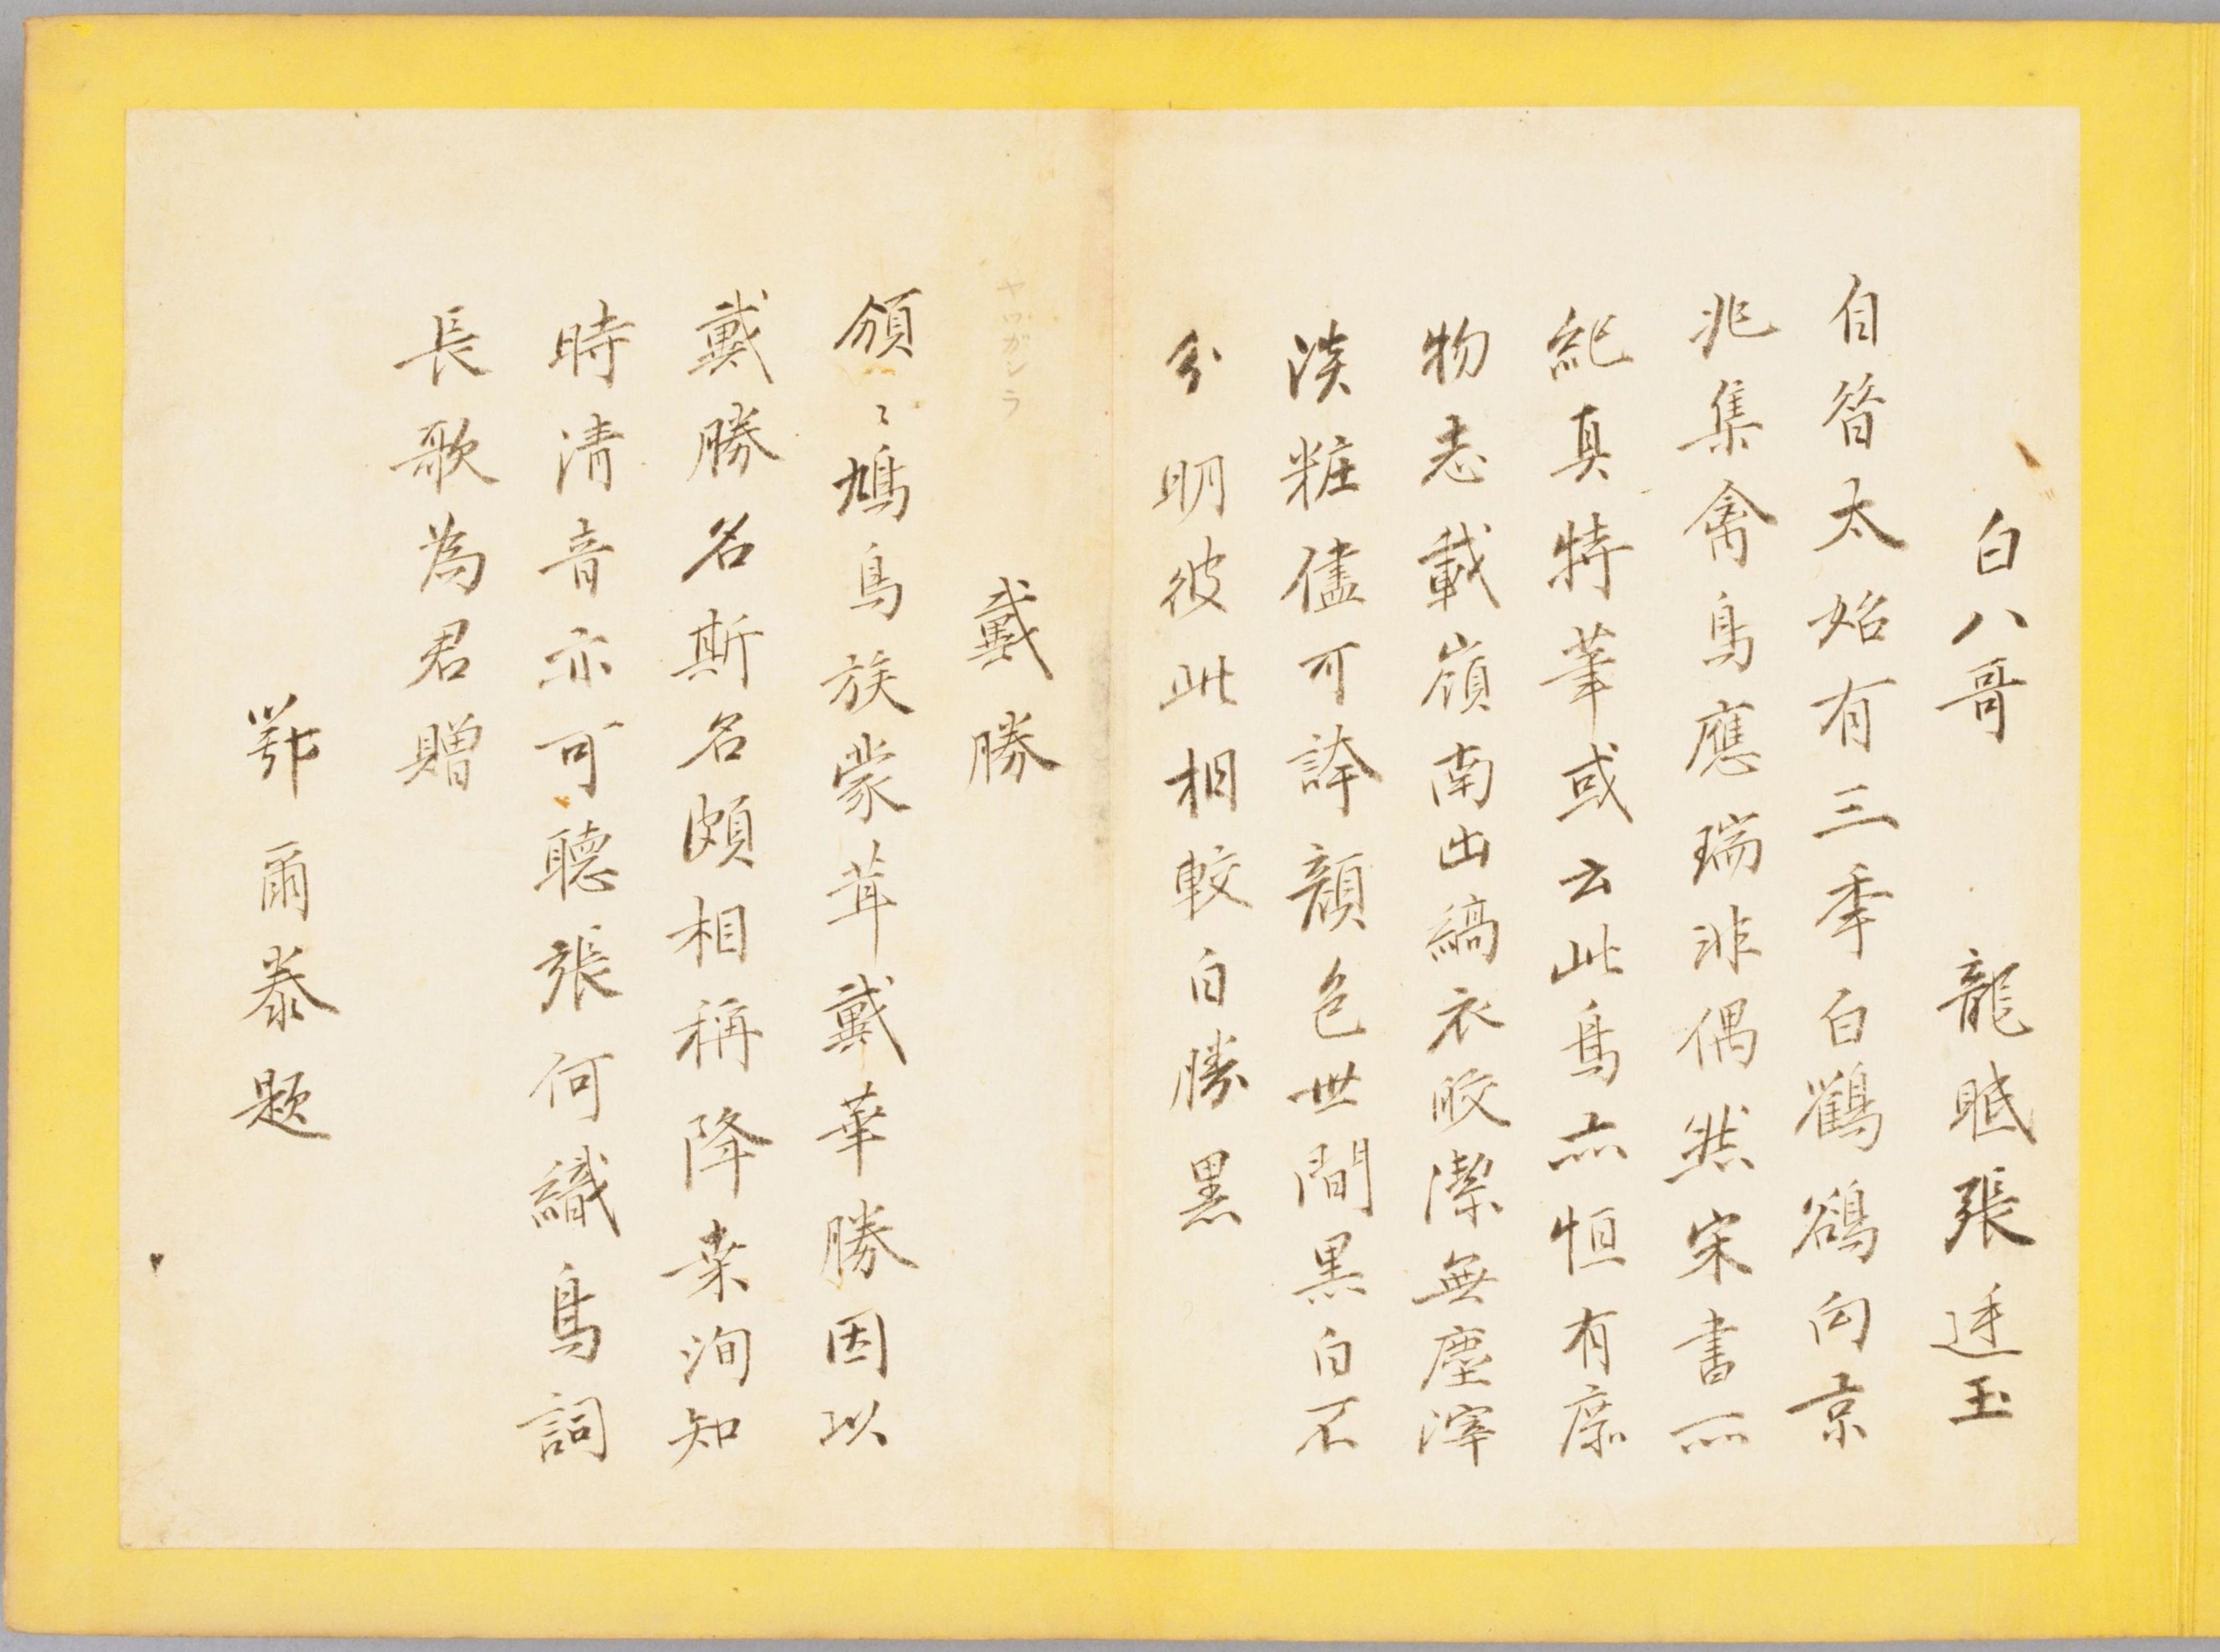 白八哥 龍眠張廷玉
自昝太始有三季白鸛鵒向京
兆集禽鳥應瑞非偶然宋書所
紀真特筆或云此鳥亦恒有麻
物志載嶺南出縞衣皎潔無塵滓
淡粧儘可誇顏色世間黒白不
分明彼此相較白勝黒
戴勝
ヤツガシラ
頒〻鳩鳥族蒙茸戴華勝因以
戴勝名斯名頗相稱降桒洵知
時清音亦可聽張何織鳥詞
長歌為君贈
鄂爾泰题